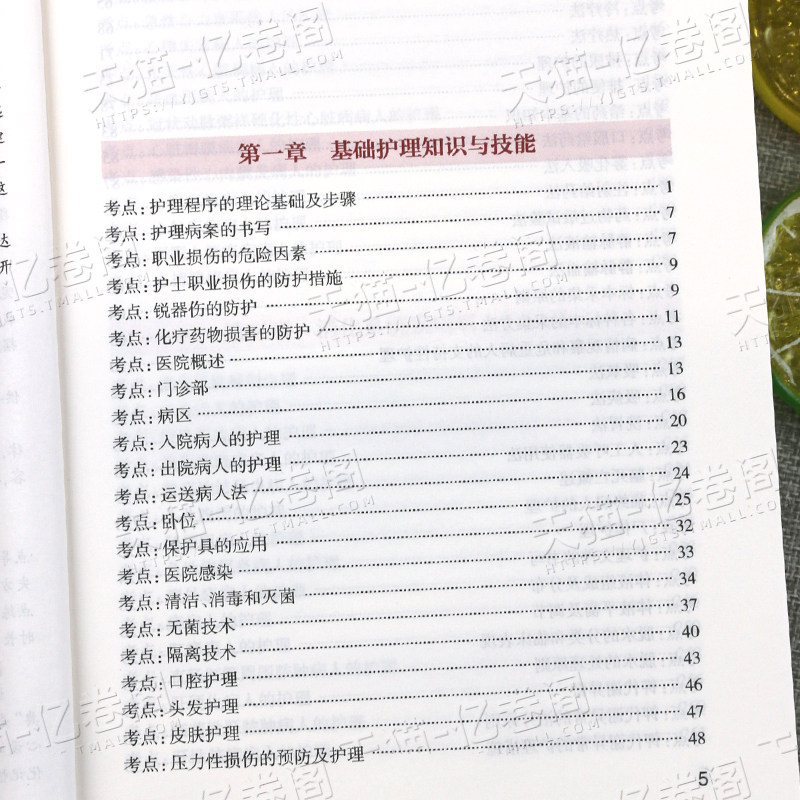 第一章 基础护理知识与技能
考点:护理程序的理论基础及步骤 1
考点:护理病案的书写 7
考点:职业损伤的危险因素 7
考点:护士职业损伤的防护措施 9
考点:锐器伤的防护 9
考点:化疗药物损害的防护 11
考点:医院概述 13
考点:门诊部 13
考点:病区 16
考点:入院病人的护理 20
考点:出院病人的护理 23
考点:运送病人法 24
考点:卧位 25
考点:保护具的应用 32
考点:医院感染 33
考点:清洁、消毒和灭菌 34
考点:无菌技术 37
考点:隔离技术 40
考点:口腔护理 43
考点:头发护理 46
考点:皮肤护理 47
考点:压力性损伤的预防及护理 48
5
天猫-亿卷阁
HTTPS://YJGTS.TMALL.COM/